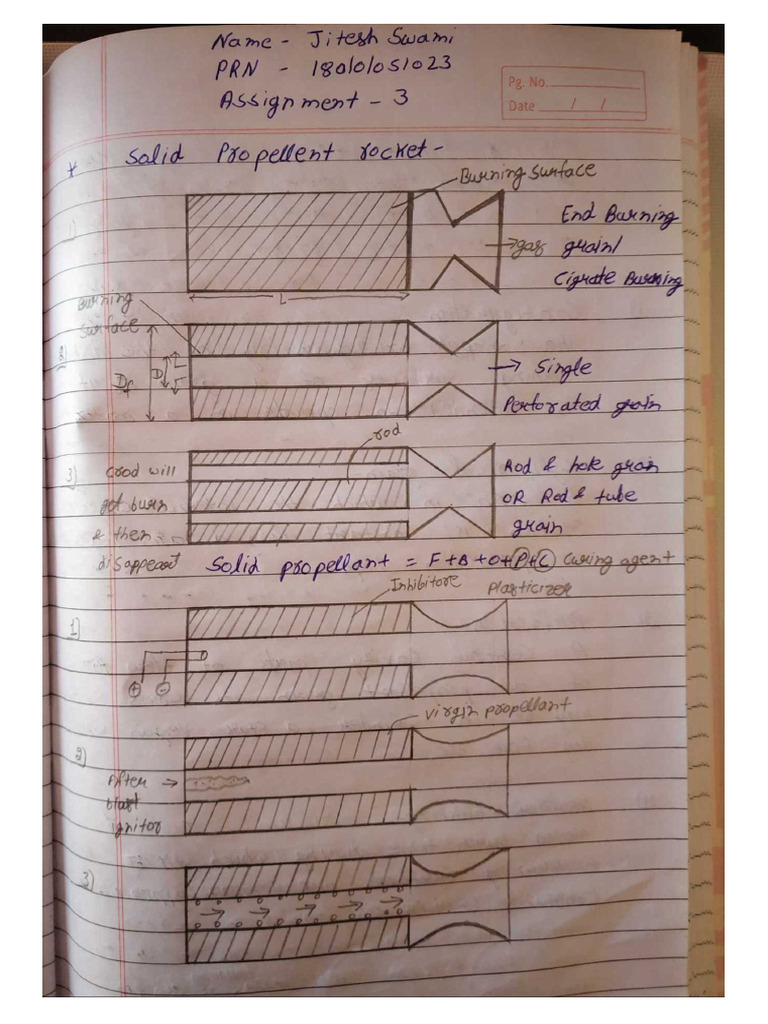 Name - Jitesh Swami
PRN - 180101051023
Assignment - 3
Pg. No.
Date / /
* Solid Propellent rocket -
Burning surface
1)
End Burning
→gas grain/
Cigrate Burning
L
Burning
surface
2)
Df
D
→ Single
Perforated grain
rod
3) (rod will
got burn
& then
disappear
Rod & hole grain
OR Rod & tube
grain
Solid propellant = F+B+O+P+C Curing agent
Plasticizer
Inhibitore
1)
+ -
virgin propellant
2)
After →
blast
ignitor
3)